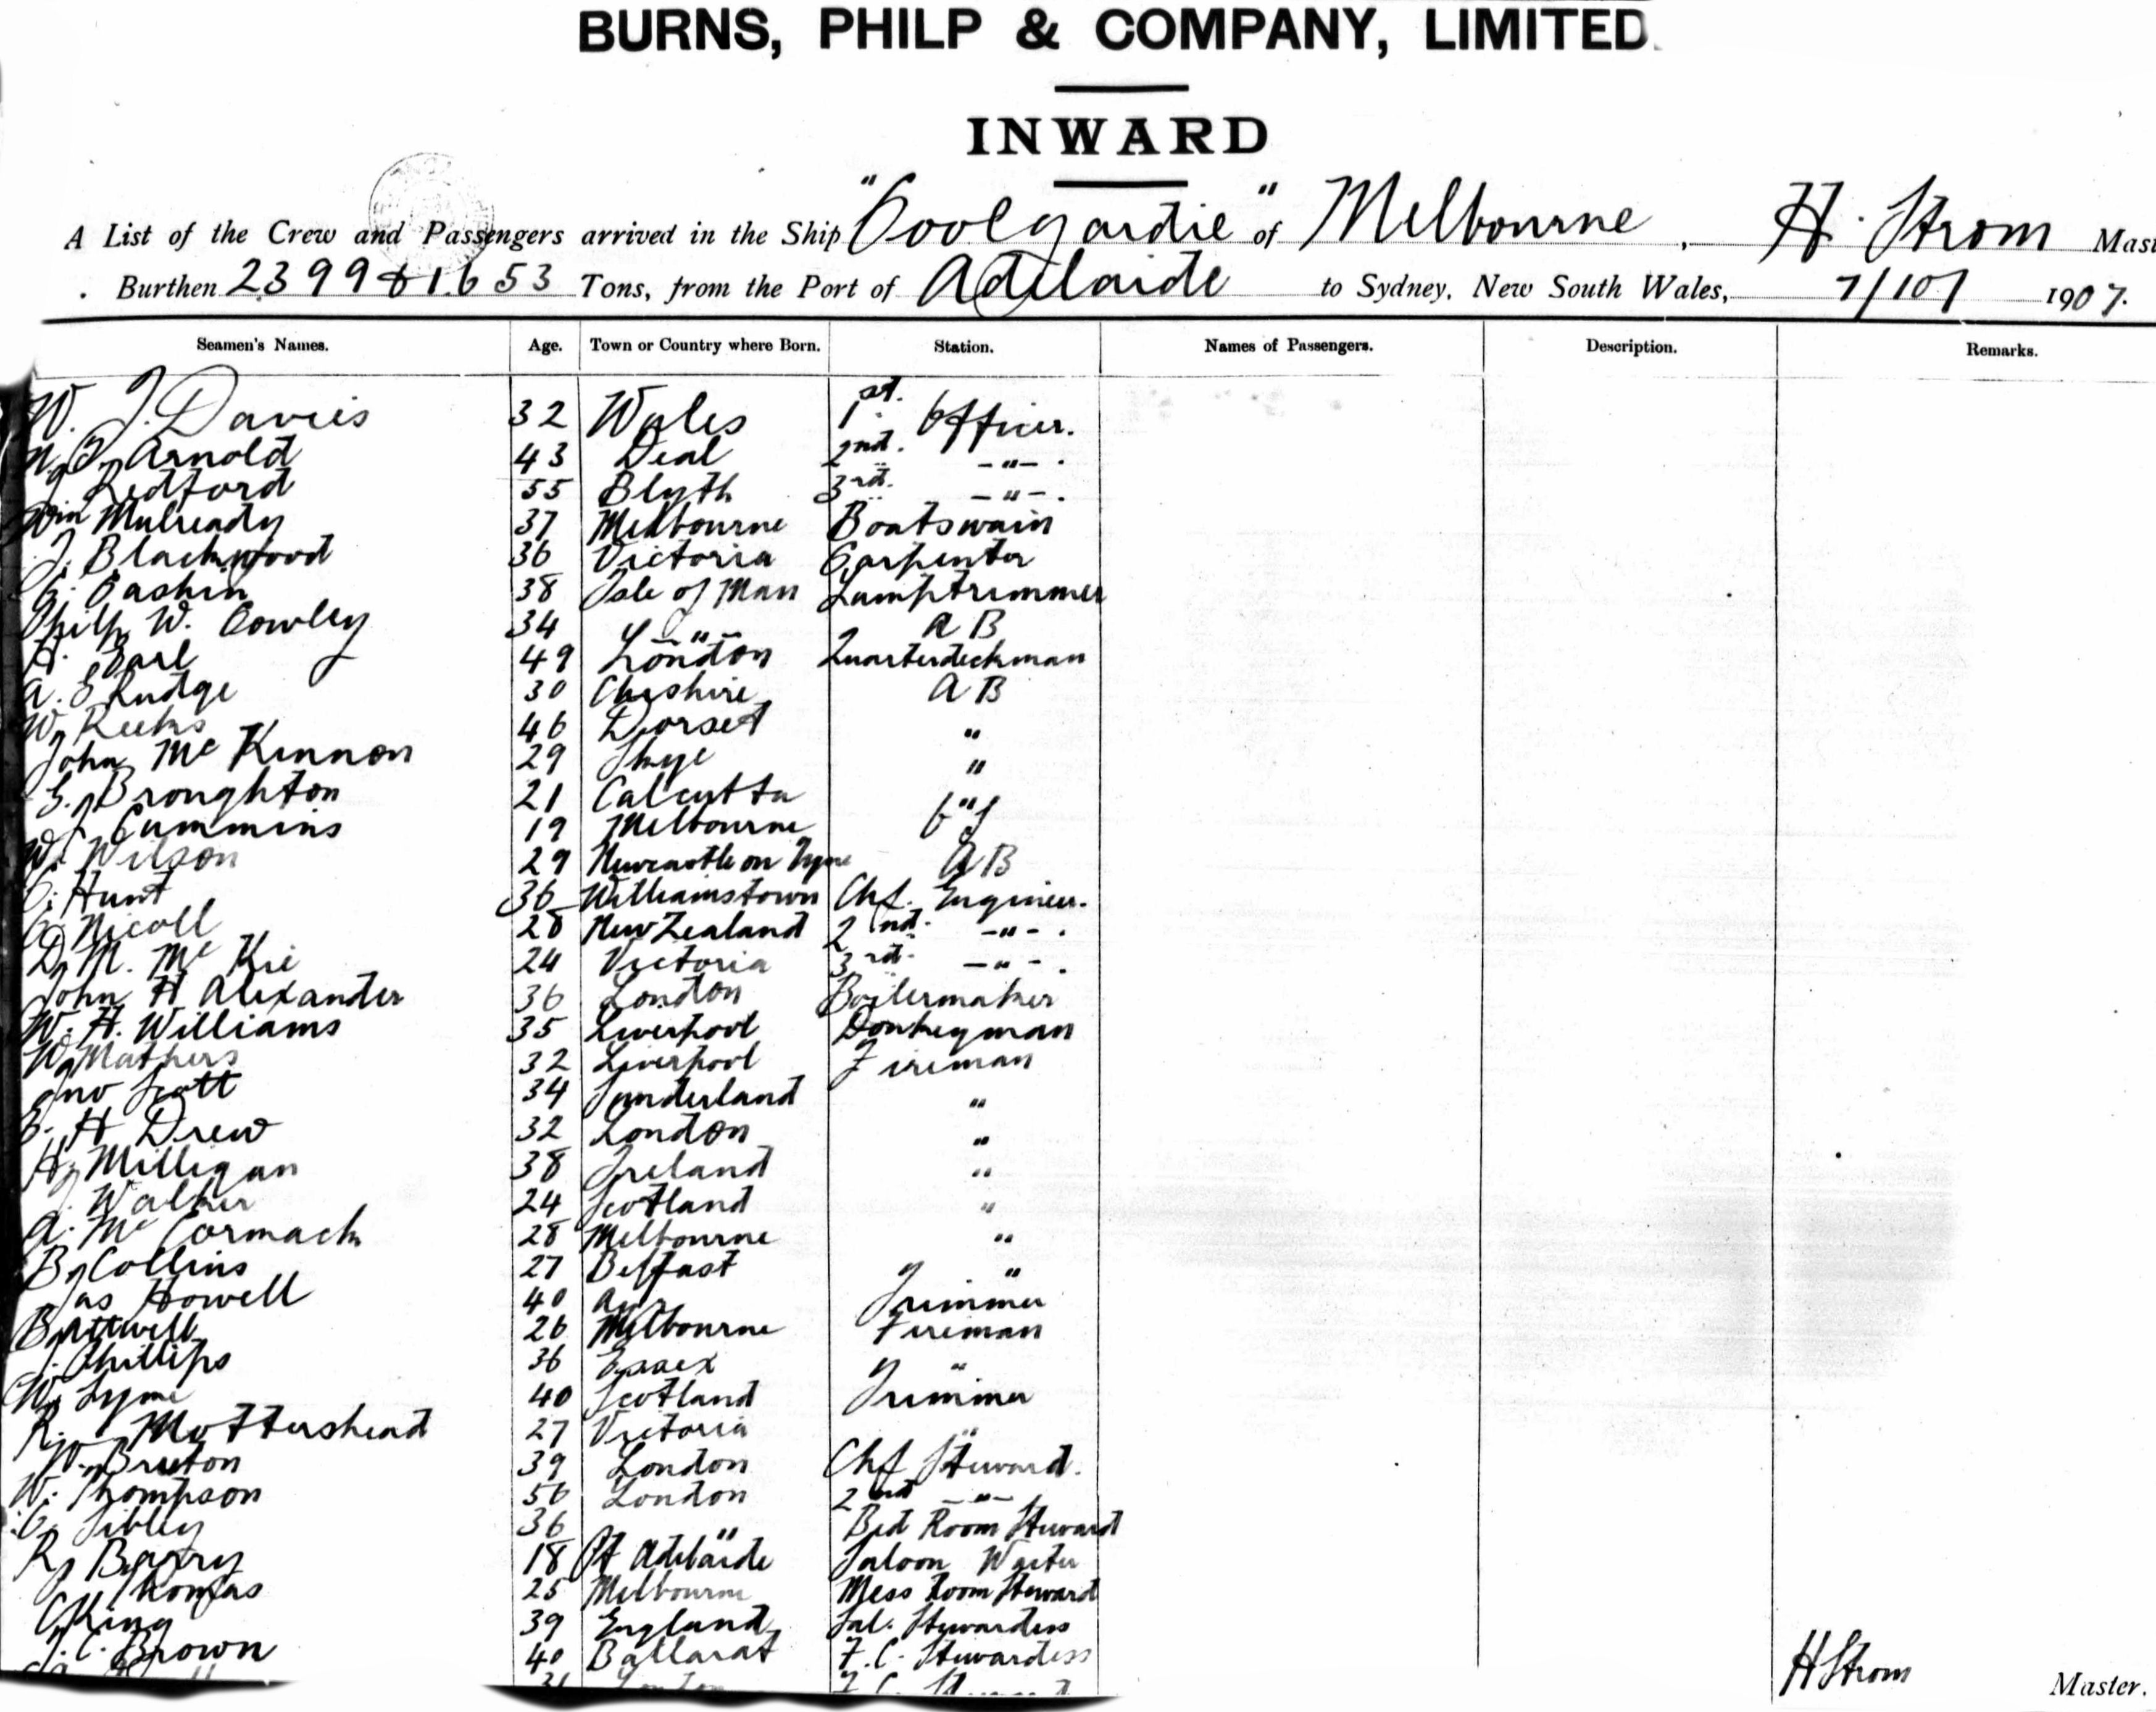 BURNS, PHILP & COMPANY, LIMITED.
INWARD
A List of the Crew and Passengers arrived in the Ship "Coolgardie" of Melbourne, H. Strom Mast
Burthen 2399 & 1653 Tons, from the Port of Adelaide to Sydney, New South Wales, 7/10/ 1907.
Seamen's Names. Age. Town or Country where Born. Station. Names of Passengers. Description. Remarks.
W. J. Davies 32 Wales 1st. Officer.
Arnold 43 Deal 2nd. -"-.
J. Redford 55 Blyth 3rd. -"-.
Wm Mulready 37 Melbourne Boatswain
J. Blackwood 36 Victoria Carpenter
Cashin 38 Isle of Man Lamptrimmer
Philp W. Cowley 34 -"- A B
H. Earl 49 London Quarterdeckman
A. E Rudge 30 Cheshire A B
W. Reeks 46 Dorset "
John McKinnon 29 Skye "
G. Broughton 21 Calcutta "
Cummins 19 Melbourne
W. Wilson 29 Newcastle on Tyne A B
C. Hunt 36 Williamstown Chf. Engineer.
Nicoll 28 New Zealand 2nd. -"-.
D. M. McKie 24 Victoria 3rd. -"-.
John H Alexander 36 London Boilermaker
W. H. Williams 35 Liverpool Donkeyman
W. Mathers 32 Liverpool Fireman
Jno Scott 34 Sunderland "
H Drew 32 London "
H. Milligan 38 Ireland "
J. Walker 24 Scotland "
A. McCormack 28 Melbourne "
B. Collins 27 Belfast "
Jas Howell 40 Ayr Trimmer
26 Melbourne Fireman
Phillips 36 Essex "
W. Lyme 40 Scotland Trimmer
R. Mottershead 27 Victoria "
W. Bruton 39 London Chf Steward.
W. Thompson 56 London 2nd -"-
C. Sibley 36 " Bed Room Steward
R. Barry 18 Pt Adelaide Saloon Waiter
Thomas 25 Melbourne Mess Room Steward
King 39 England Sal. Stewardess
J. C. Brown 40 Ballarat F. C. Stewardess
31 London F. C.
H Strom Master.